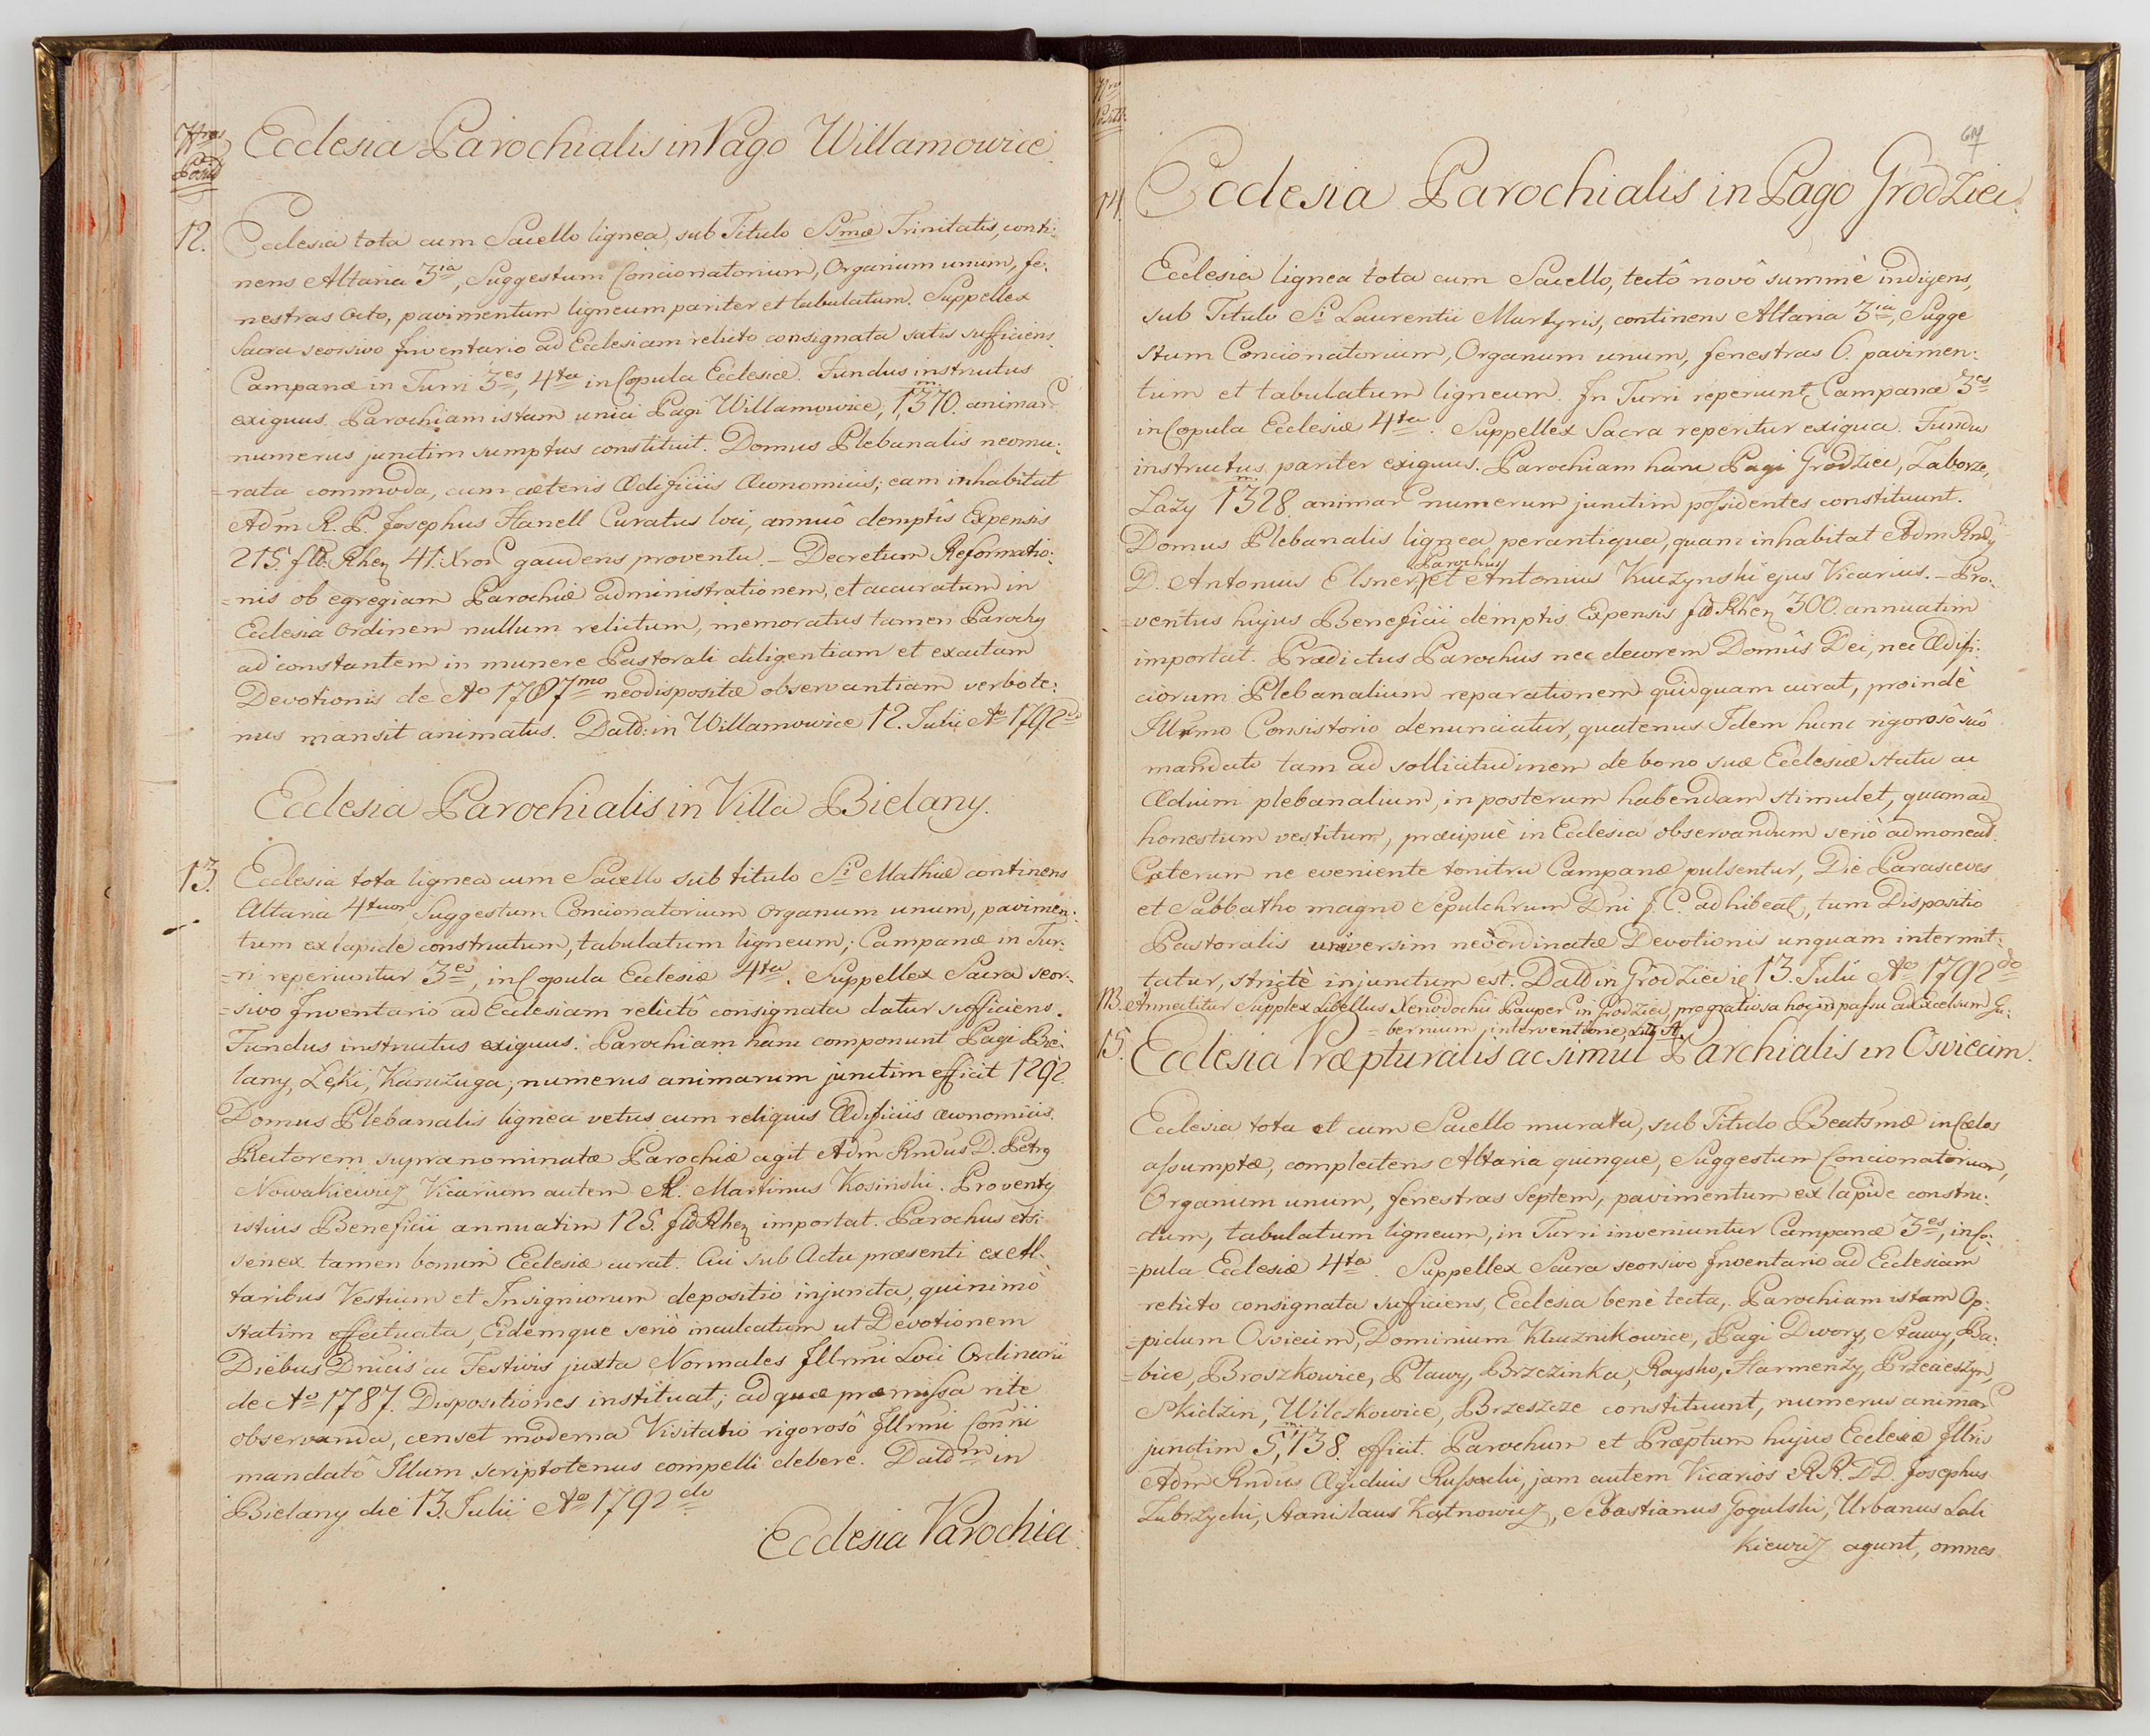 Nrus
Posit
Ecclesia Parochialis in Pago Willamowice.
12. Ecclesia tota cum Sacello lignea, sub Titulo SSmæ Trinitatis, conti:
nens Altaria 3ia, Suggestum Concionatorium, Organum unum, fe:
nestras octo, pavimentum ligneum pariter et tabulatum. Suppellex
Sacra seorsivo Inventario ad Ecclesiam relicto consignata satis sufficiens.
Campanæ in Turri 3es, 4ta in Copula Ecclesiæ. Fundus instructus
exiguus. Parochiam istam unici Pagi Willamowice, 1,370. animar
numerus junctim sumptus constituit. Domus Plebanalis neomu:
=rata commoda, cum cæteris Ædificiis Œconomicis; eam inhabitat
Adm R. P. Josephus Hanell Curatus loci, annuô demptîs Expensis
215. flo: Rhen 41. Xror gaudens proventu. – Decretum Reformatio:
=nis ob egregiam Parochiæ administrationem, et accuratum in
Ecclesia Ordinem nullum relictum, memoratus tamen Parochy
ad constantem in munere Pastorali diligentiam et exactam
Devotionis de Ao 1787mo neodispositæ observantiam verbote:
nus mansit animatus. Datd: in Willamowice 12. Julii Ao 1792do
Ecclesia Parochialis in Villa Bielany.
13. Ecclesia tota lignea cum Sacello sub titulo Si Mathiæ continens
Altaria 4tuor Suggestum Concionatorium Organum unum, pavimen:
tum ex lapide constructum, tabulatum ligneum; Campanæ in Tur:
=ri reperiuntur 3es, in Copula Ecclesiæ 4ta. Suppellex Sacra seor:
=sivo Inventario ad Ecclesiam relictô consignata datur sufficiens.
Fundus instructus exiguus. Parochiam hanc componunt Pagi Bie:
lany, Łęki, Kanczuga; numerus animarum junctim efficit 1292.
Domus Plebanalis lignea vetus cum reliquis Ædificiis œconomicis.
Rectorem supranominatæ Parochiæ agit Adm Rndus D. Petry
Nowakiewicz Vicarium autem A. Martinus Kosinski. Proventy
istius Beneficii annuatim 125. flo Rhen importat. Parochus etsi
senex tamen bonum Ecclesiæ curat. Cui sub Actu præsenti ex Al:
taribus Vestium et Insigniorum depositio injuncta, quinimo
statim effectuata, Eidemque seriò inculcatum ut Devotionem
Diebus Dnicis ac Festivis juxta Normales Illrmi Loci Ordinarii
de Ao 1787. Dispositiones instituat; ad quæ præmissa rite
observanda, censet moderna Visitatio rigorosô Illrmi Con̄rii
mandatô Illum scriptotenus compelli debere. Datdm in
Bielany die 13. Julii Ao 1792do
Ecclesia Parochia:
Nrus
Posit:
67
14. Ecclesia Parochialis in Pago Grodziec.
Ecclesia lignea tota cum Sacello, tectô novô summè indigens,
sub Titulo Si Laurentii Martyris, continens Altaria 3ia, Sugge
stum Concionatorium, Organum unum, fenestras 6. pavimen:
tum et tabulatum ligneum. In Turri reperiunt Campanæ 3es
in Copula Ecclesiæ 4ta. Suppellex Sacra reperitur exigua. Fundus
instructus pariter exiguus. Parochiam hanc Pagi Grodziec, Zaborze,
Lazy 1328. animar numerum junctim possidentes constituunt.
Domus Plebanalis lignea perantiqua, quam inhabitat Adm Rndy
D. Antonius Elsner, Parochus et Antonius Kuczynski ejus Vicarius. – Pro:
=ventus hujus Beneficii demptis Expensis flo Rhen 300. annuatim
importat. Prædictus Parochus nec decorem Domûs Dei, nec Ædifi:
ciorum Plebanalium reparationem quidquam curat, proindè
Illrmo Consistorio denunciatur, quatenus Idem hunc rigorosô suô
mandato tam ad sollicitudinem de bono suæ Ecclesiæ statu ac
Ædium plebanalium, in posterum habendam stimulet, quam ad
honestum vestitum, præcipuè in Ecclesia observandum seriò admoneat.
Cæterum ne eveniente tonitru Campanæ pulsentur, Die Parasceves
et Sabbatho magno Sepulchrum Dni J. C. adhibeat, tum Dispositio
Pastoralis universim neoordinatæ Devotionis unquam intermit:
tatur, strictè injunctum est. Datd in Grodziec 13. Julii Ao 1792do
NB. Annectitur Supplex Libellus Xenodochii Pauper in Grodziec, pro gratiosa hoc in passu ad Excelsum Gu:
=bernium interventione, Litt A.
15. Ecclesia Præpturalis ac simul Parchialis in Osviecim.
Ecclesia tota et cum Sacello murata, sub Titulo Beatsmæ in Cœlos
assumptæ, complectens Altaria quinque, Suggestum Concionatorium,
Organum unum, fenestras Septem, pavimentum ex lapide constru:
ctum, tabulatum ligneum, in Turri inveniuntur Campanæ 3es, in Co:
=pula Ecclesiæ 4ta. Suppellex Sacra seorsivo Inventario ad Ecclesiam
relicto consignata sufficiens, Ecclesia benè tecta,. Parochiam istam Op:
=pidum Osviecim, Dominium Kluznikowice, Pagi Dwory, Stawy, Ba:
=bice, Broszkowice, Plawy, Brzezinka, Raysko, Harmenzy, Przecieszyn,
Skidzin, Wilczkowice, Brzeszcze constituunt, numerus animar
junctim 5,138. efficit. Parochum et Præptum hujus Ecclesiæ Illris
Adm Rndus Ægiduis Russocki, jam autem Vicarios RR. DD. Josephus
Zubrzycki, Stanislaus Katnowicz, Sebastianus Gogulski, Urbanus Lali
kiewicz agunt, omnes